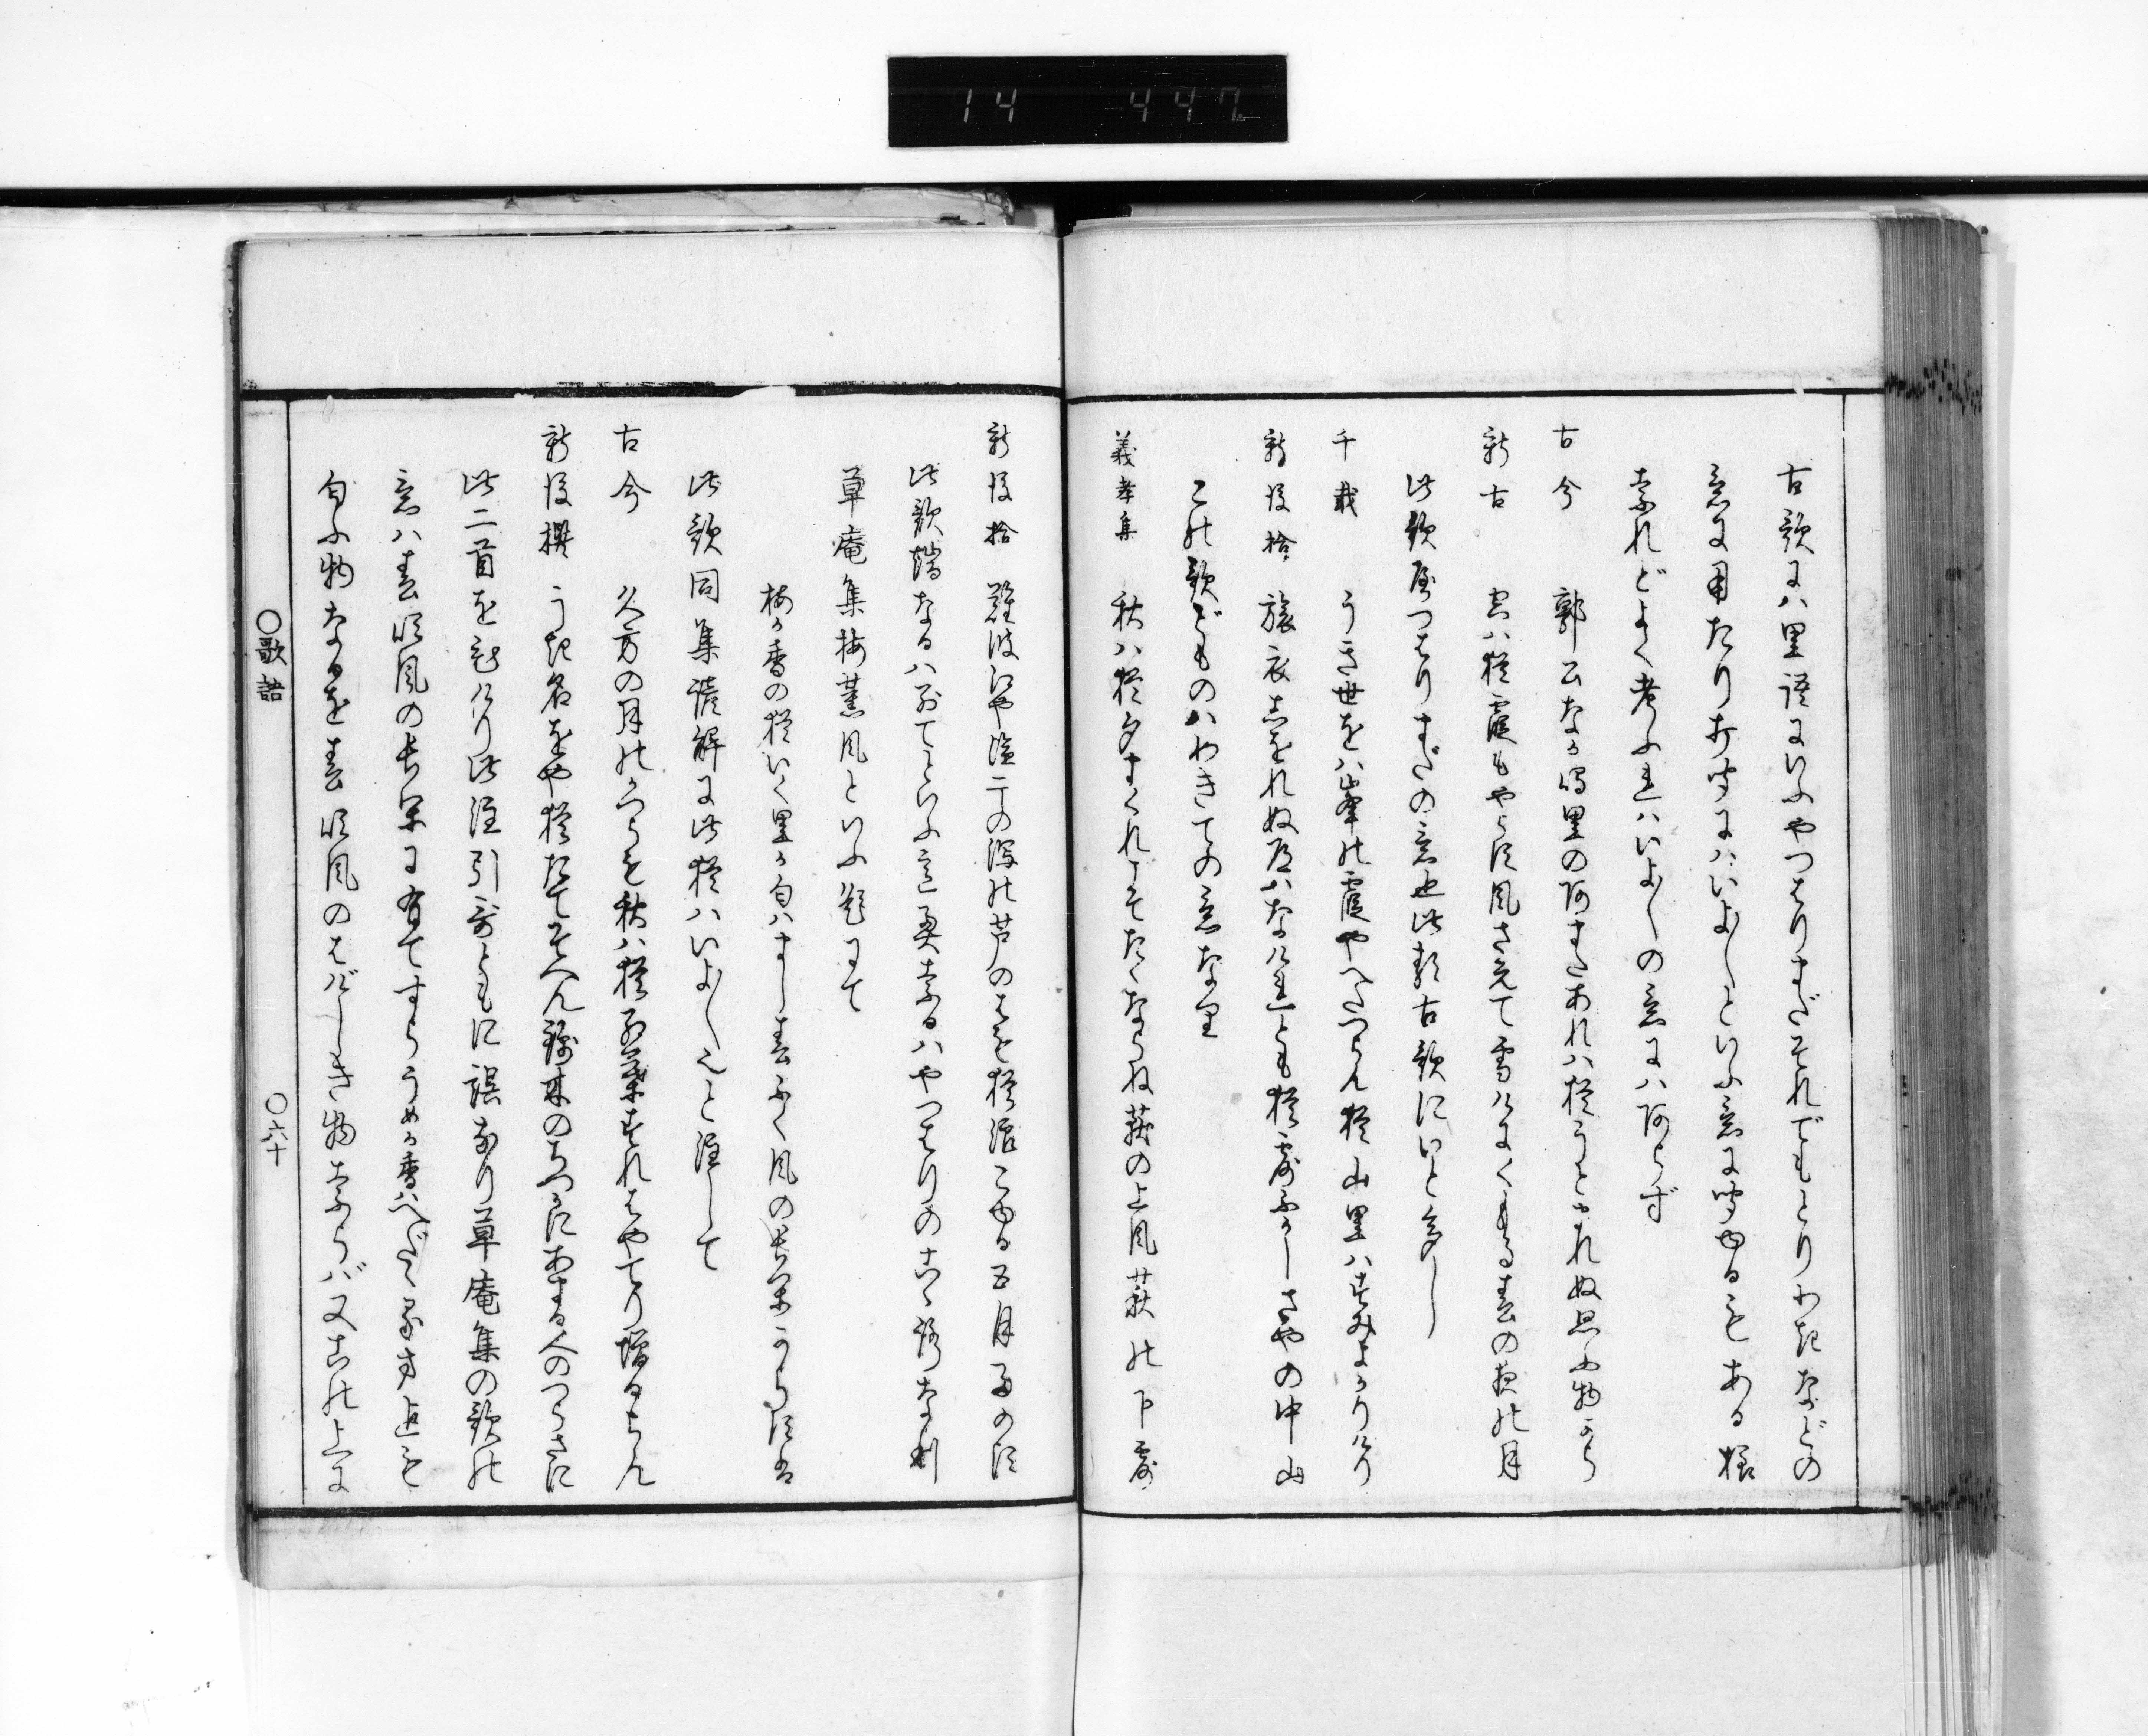 14 447
古歌にハ里語にいふやつはりまだそれでもとりわきなどの
意に用たり打聞にハいよ〱といふ意に聞ゆるもある様
なれどよく考ふれハいよ〱の意にハあらず
古今 郭公なか鳴里のあまたあれハ猶うとまれぬ思ふ物から
新古 空ハ猶霞もやらす風さえて雪けにくもる春の夜の月
此歌やつはりまだの意也此類古歌にいと多し
千載 うき世をハ峯の霞やへたつらん猶山里ハすみよかりけり
新後拾 旅衣しをれぬ道ハなけれとも猶露ふかしさやの中山
この歌どものハわきての意なり
義孝集 秋ハ猶夕まくれこそたゝならね荻の上風萩の下露
新後拾 難波江や 汐の芦のはも猶 こゆる五月雨の
此歌 なるハ てといふ意 なるハやつはりのこゝろなり
草庵集梅薫風といふ題にて
梅か香の猶いく里か匂ハまし春ふく風の長閑ならすは
此歌同集諺解に此猶ハいよ〱也と注して
古今 久方の月のかつらも秋ハ猶紅葉すれはやてり増るらん
新後撰 うき名をや猶たてそへん錦木のちつかにあまる人のつらさに
此二首を引けり此注引哥ともに誤なり草庵集の歌の
意ハ春ハ風の長閑に有てすらうめか香ハへだゝる まても
匂ふ物なるを春ハ風のはげしき物ならバ又この上に
〇歌語 〇六十